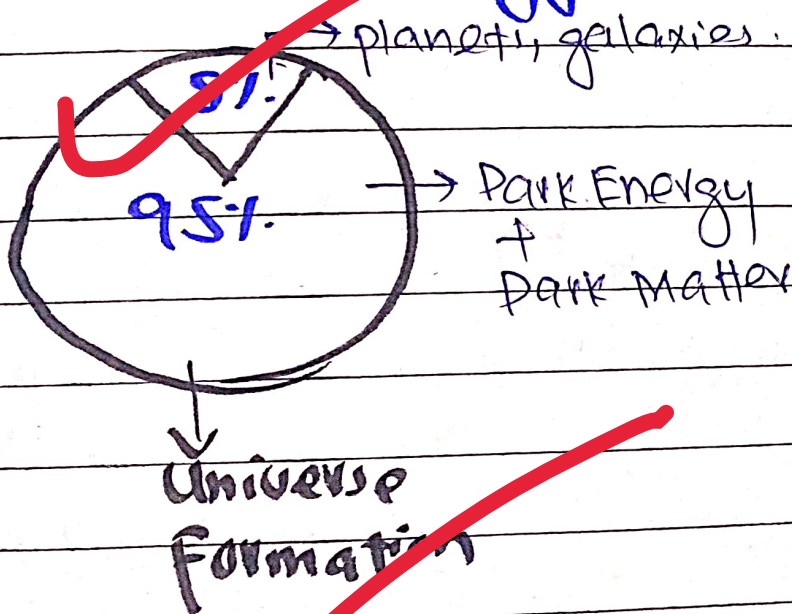 → planets, galaxies.
5%.
95%.
→ Dark Energy
+
Dark Matter
Universe
Formation